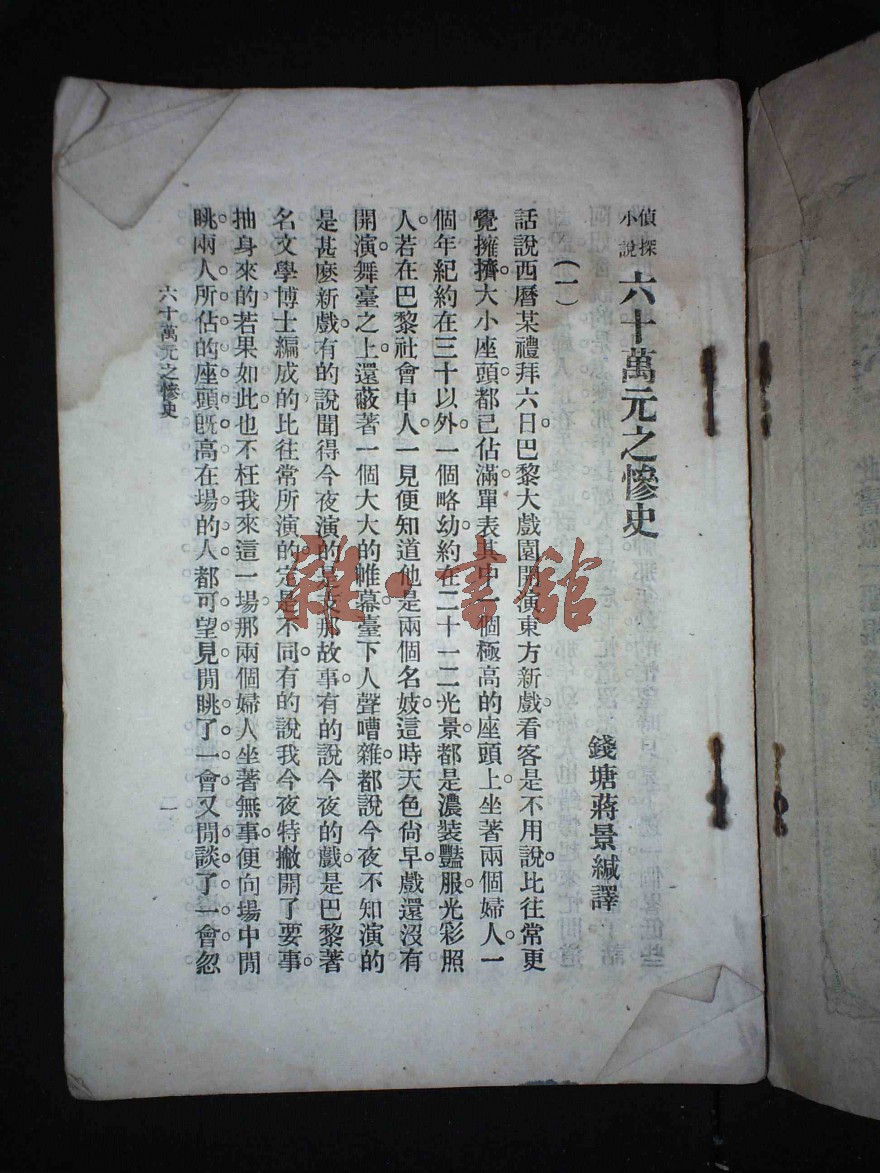 偵探小說 六十萬元之慘史
錢塘蔣景緘譯
(一)
話說西曆某禮拜六日。巴黎大戲園開演東方新戲。看客是不用說。比往常更
覺擁擠。大小座頭。都已佔滿。單表其中一個極高的座頭上。坐著兩個婦人。一
個年紀約在三十以外。一個略幼。約在二十一二光景。都是濃裝豔服。光彩照
人。若在巴黎社會中人。一見便知道他是兩個名妓。這時天色尚早。戲還沒有
開演。舞臺之上。還蔽著一個大大的帷幕。臺下人聲嘈雜。都說今夜不知演的
是甚麼新戲。有的說聞得今夜演的是支那故事。有的說今夜的戲。是巴黎著
名文學博士編成的。比往常所演的。定是不同。有的說我今夜特撇開了要事。
抽身來的。若果如此。也不枉我來這一場。那兩個婦人。坐著無事。便向場中閒
眺。兩人所佔的座頭既高。在場的人。都可望見。閒眺了一會。又閒談了一會。忽
六十萬元之慘史
一
雜·書館